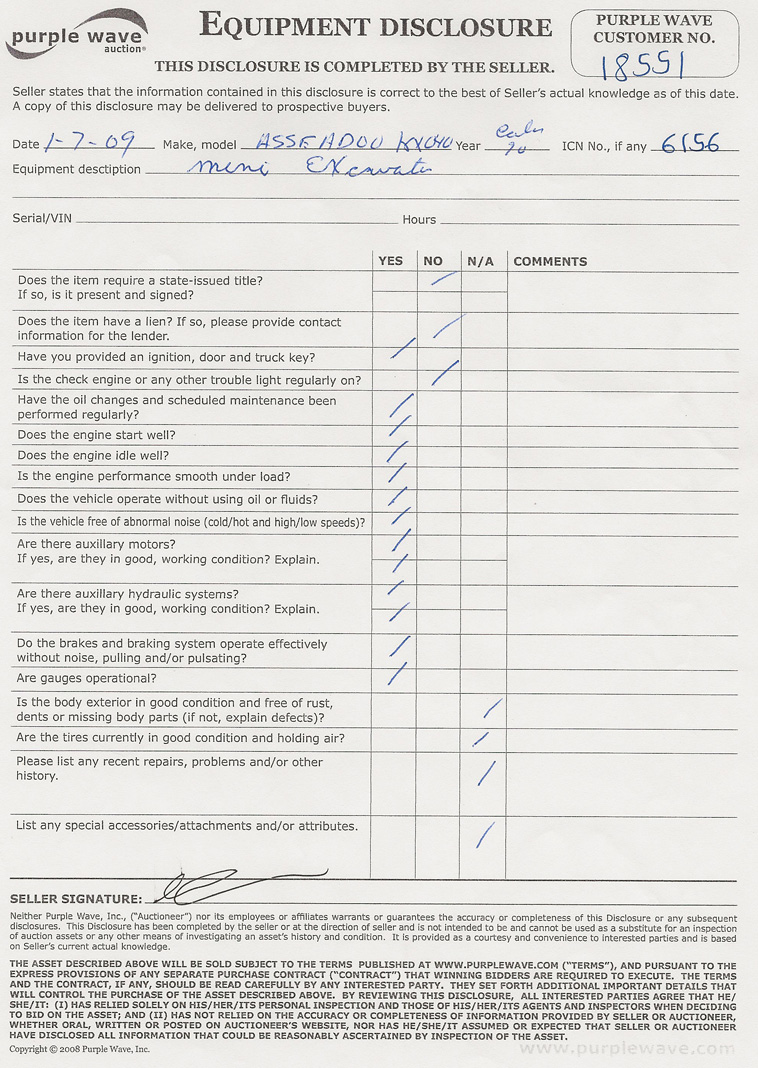 purple wave
auction®
EQUIPMENT DISCLOSURE
PURPLE WAVE
CUSTOMER NO.
18551
THIS DISCLOSURE IS COMPLETED BY THE SELLER.
Seller states that the information contained in this disclosure is correct to the best of Seller's actual knowledge as of this date.
A copy of this disclosure may be delivered to prospective buyers.
Date 1-7-09 Make, model KX040 Year 90 ICN No., if any 6156
Equipment desctiption mini EXcavator
Serial/VIN Hours
YES NO N/A COMMENTS
Does the item require a state-issued title?
If so, is it present and signed?
Does the item have a lien? If so, please provide contact
information for the lender.
Have you provided an ignition, door and truck key?
Is the check engine or any other trouble light regularly on?
Have the oil changes and scheduled maintenance been
performed regularly?
Does the engine start well?
Does the engine idle well?
Is the engine performance smooth under load?
Does the vehicle operate without using oil or fluids?
Is the vehicle free of abnormal noise (cold/hot and high/low speeds)?
Are there auxillary motors?
If yes, are they in good, working condition? Explain.
Are there auxillary hydraulic systems?
If yes, are they in good, working condition? Explain.
Do the brakes and braking system operate effectively
without noise, pulling and/or pulsating?
Are gauges operational?
Is the body exterior in good condition and free of rust,
dents or missing body parts (if not, explain defects)?
Are the tires currently in good condition and holding air?
Please list any recent repairs, problems and/or other
history.
List any special accessories/attachments and/or attributes.
SELLER SIGNATURE:
Neither Purple Wave, Inc., ("Auctioneer") nor its employees or affiliates warrants or guarantees the accuracy or completeness of this Disclosure or any subsequent
disclosures. This Disclosure has been completed by the seller or at the direction of seller and is not intended to be and cannot be used as a substitute for an inspection
of auction assets or any other means of investigating an asset's history and condition. It is provided as a courtesy and convenience to interested parties and is based
on Seller's current actual knowledge.
THE ASSET DESCRIBED ABOVE WILL BE SOLD SUBJECT TO THE TERMS PUBLISHED AT WWW.PURPLEWAVE.COM ("TERMS"), AND PURSUANT TO THE
EXPRESS PROVISIONS OF ANY SEPARATE PURCHASE CONTRACT ("CONTRACT") THAT WINNING BIDDERS ARE REQUIRED TO EXECUTE. THE TERMS
AND THE CONTRACT, IF ANY, SHOULD BE READ CAREFULLY BY ANY INTERESTED PARTY. THEY SET FORTH ADDITIONAL IMPORTANT DETAILS THAT
WILL CONTROL THE PURCHASE OF THE ASSET DESCRIBED ABOVE. BY REVIEWING THIS DISCLOSURE, ALL INTERESTED PARTIES AGREE THAT HE/
SHE/IT: (I) HAS RELIED SOLELY ON HIS/HER/ITS PERSONAL INSPECTION AND THOSE OF HIS/HER/ITS AGENTS AND INSPECTORS WHEN DECIDING
TO BID ON THE ASSET; AND (II) HAS NOT RELIED ON THE ACCURACY OR COMPLETENESS OF INFORMATION PROVIDED BY SELLER OR AUCTIONEER,
WHETHER ORAL, WRITTEN OR POSTED ON AUCTIONEER'S WEBSITE, NOR HAS HE/SHE/IT ASSUMED OR EXPECTED THAT SELLER OR AUCTIONEER
HAVE DISCLOSED ALL INFORMATION THAT COULD BE REASONABLY ASCERTAINED BY INSPECTION OF THE ASSET.
Copyright © 2008 Purple Wave, Inc.
www.purplewave.com